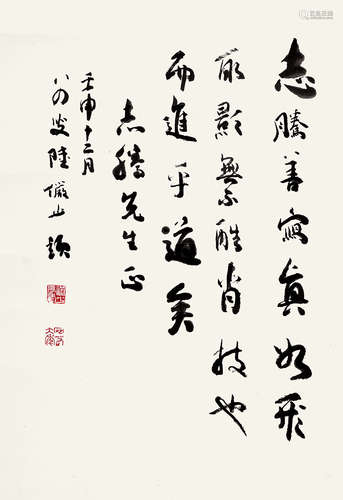 志騰善寫真如形
取影無不酷肖技也
而進乎道矣
志騰先生正
壬申十二月
八四叟陸儼少題